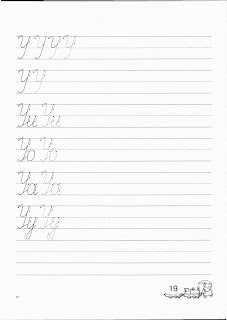 Y Y Y Y
Y Y
Yu Yu
Yo Yo
Ya Ya
Yy Yy
19